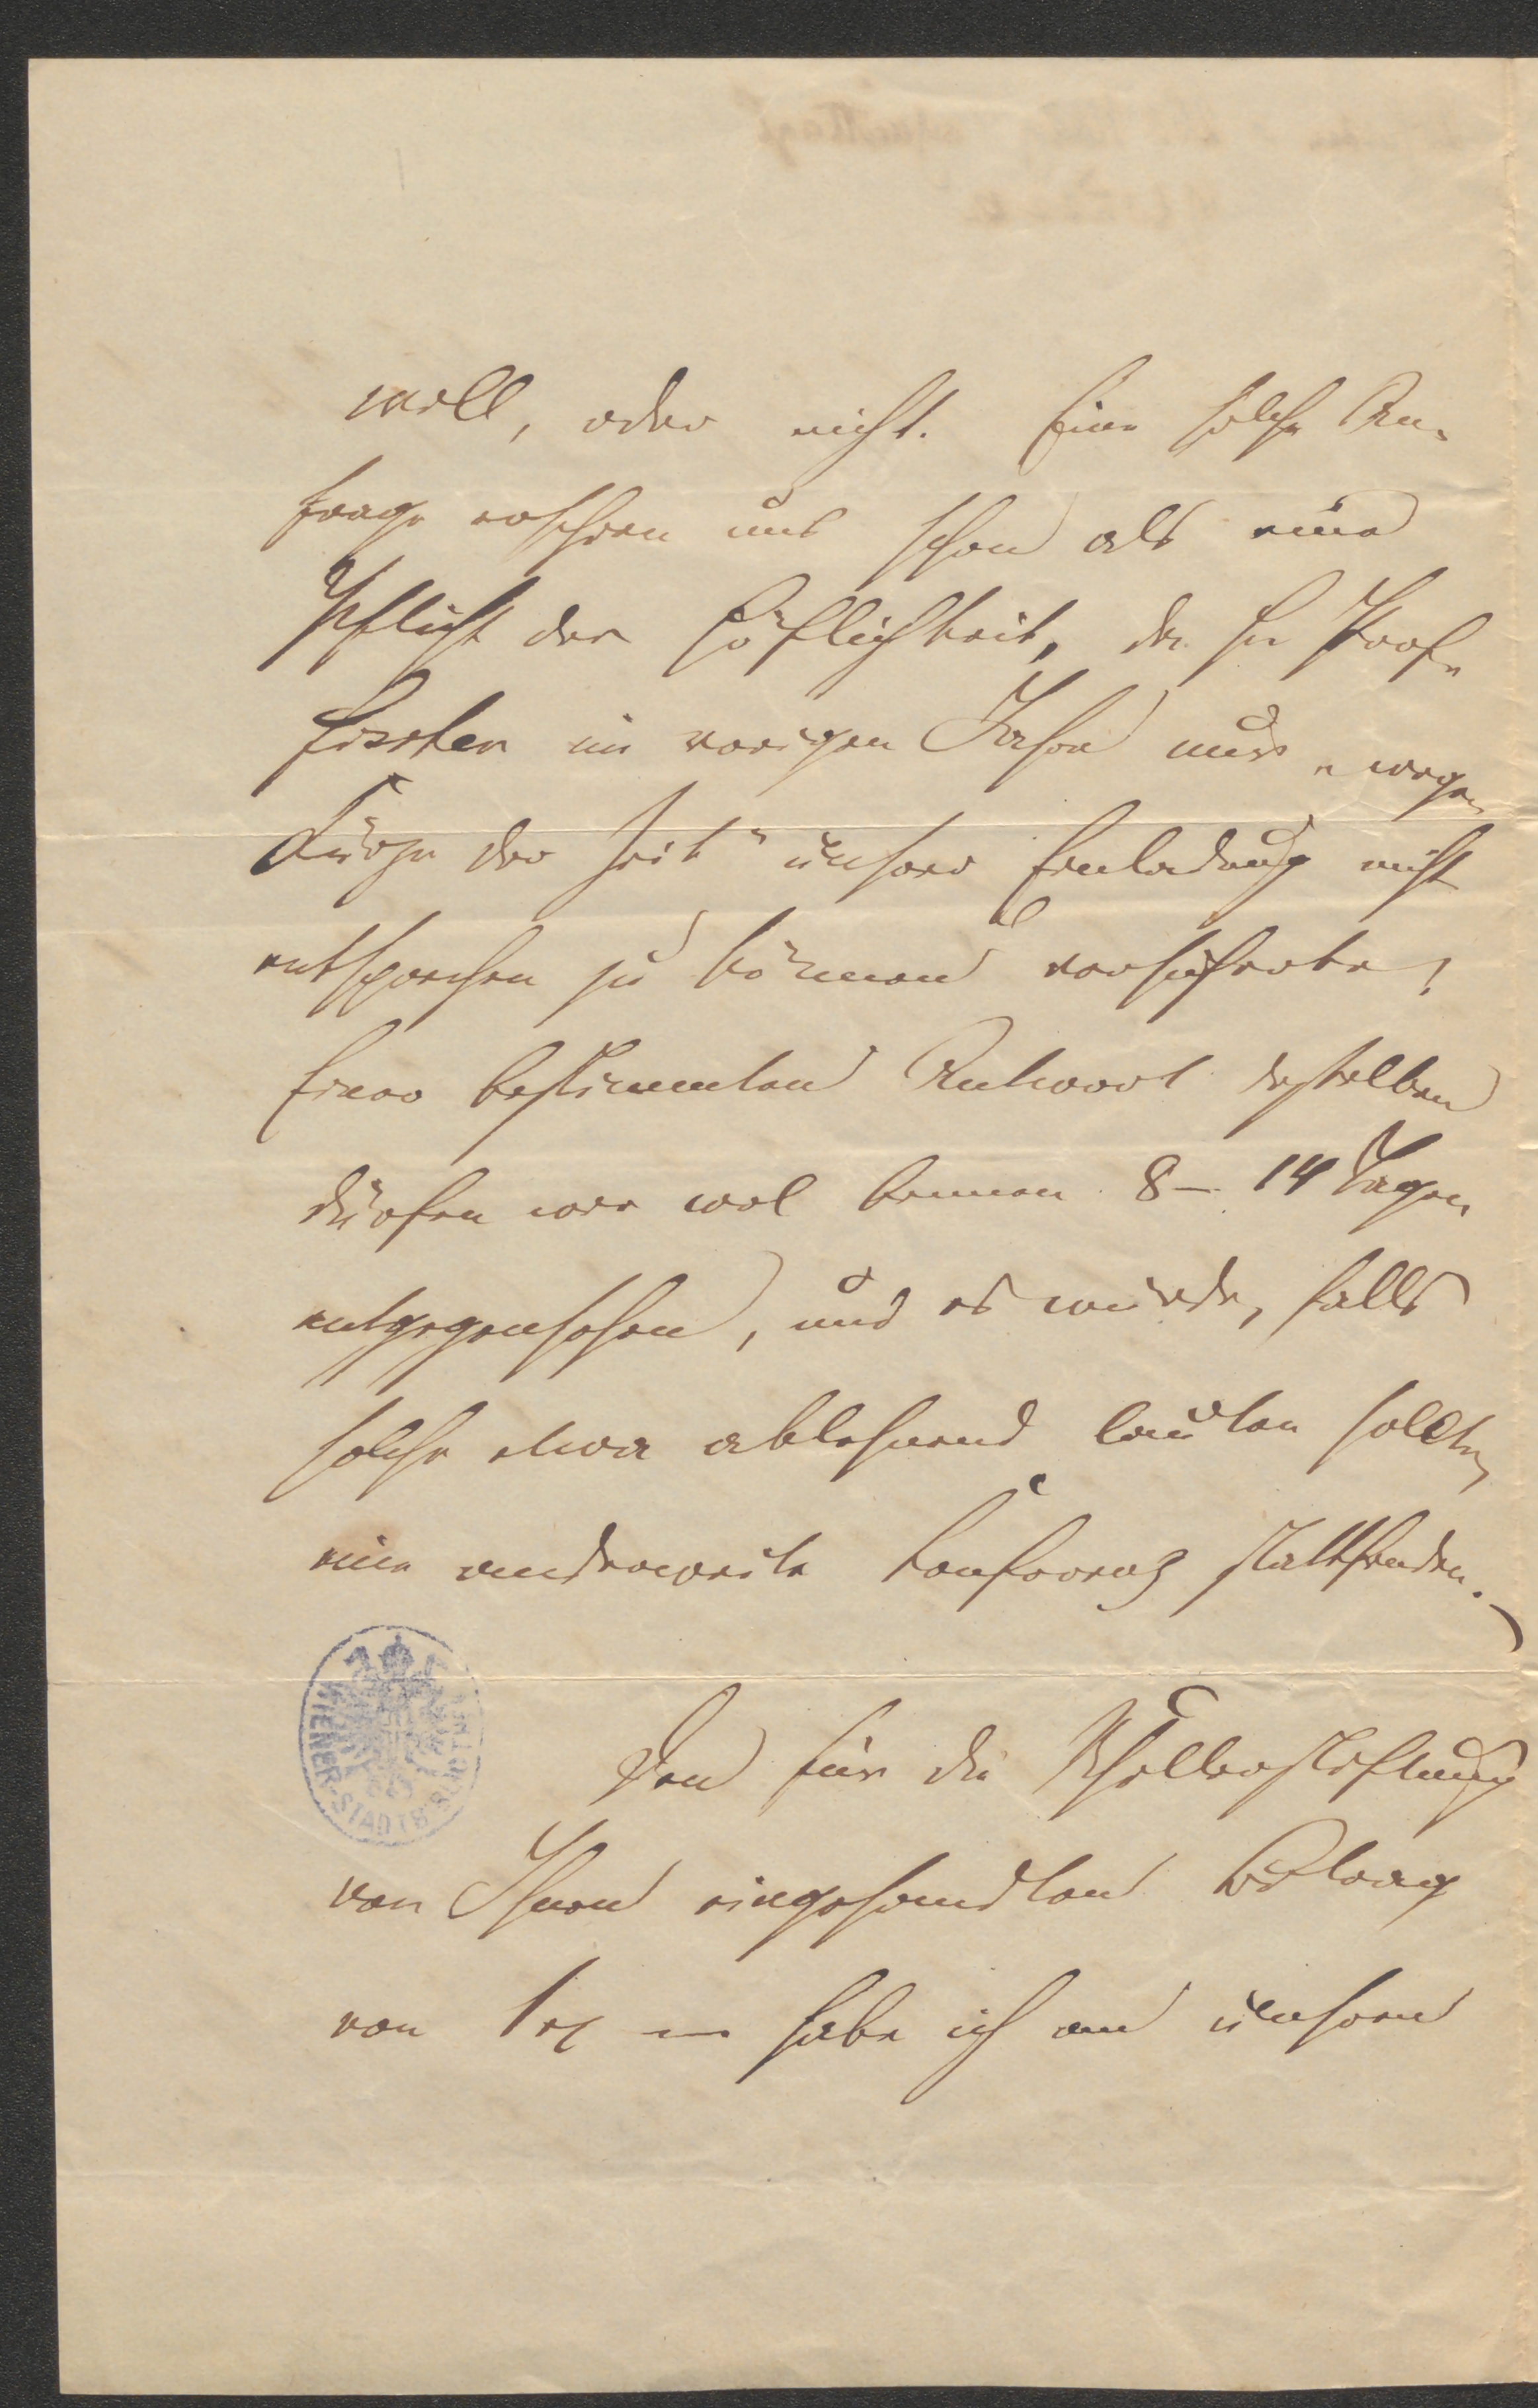 will, oder nicht. Eine solche An-
frage erschien uns schon als eine
Pflicht der Höflichkeit, da Hr Prof.
Fischer im vorigen Jahre nur „wegen
Kürze der Zeit" unserer Einladung nicht
entsprechen zu können versicherte.
Einer bestimmten Antwort desselben
dürfen wir wol binnen 8 – 14 Tagen
entgegensehen, und es würde, falls
solche etwa ablehnend lauten sollte,
eine anderweite Conferenz stattfinden.
Den für die Schillerstiftung
von Ihnen eingesandten Betrag
von habe ich an unsern
WIENER-STADTBIBLIOTHEK